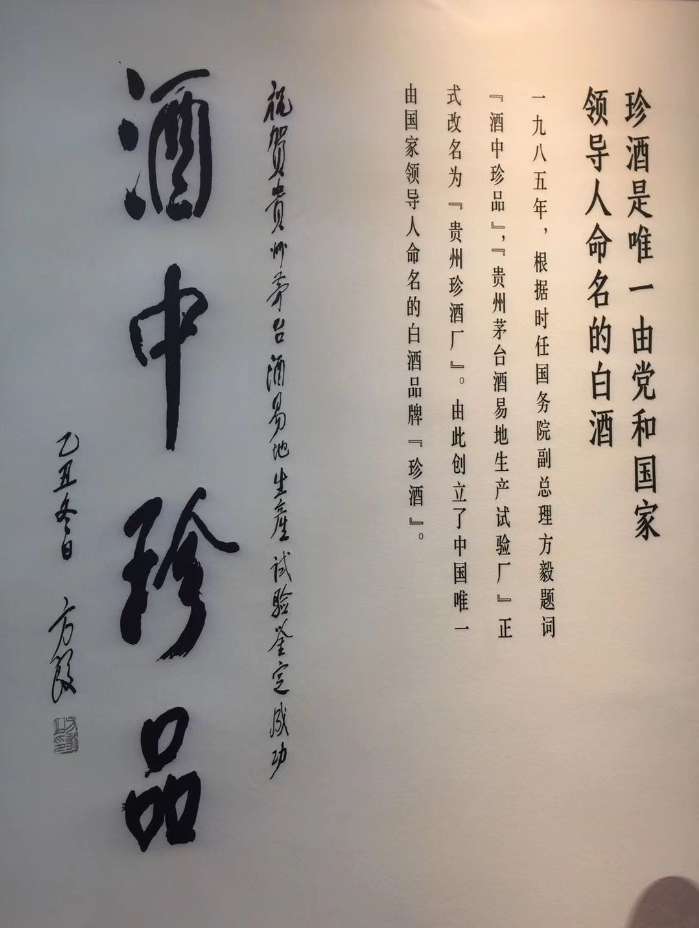 珍酒是唯一由党和国家
领导人命名的白酒
一九八五年，根据时任国务院副总理方毅题词
『酒中珍品』，『贵州茅台酒易地生产试验厂』正
式改名为『贵州珍酒厂』。由此创立了中国唯一
由国家领导人命名的白酒品牌『珍酒』。
祝贺贵州茅台酒易地生產试驗鉴定成功
酒中珍品
乙丑冬日 方毅